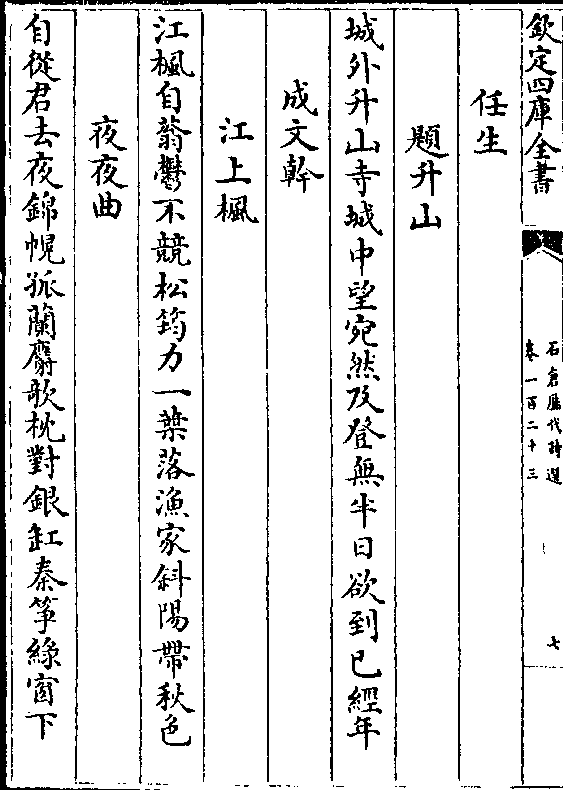 欽定四庫全書
石倉歷代詩選
卷一百二十三
七
任生
題升山
城外升山寺城中望宛然及登無半日欲到已經年
成文幹
江上楓
江楓自蓊鬱不競松筠力一葉落漁家斜陽帶秋色
夜夜曲
自從君去夜錦幌孤蘭麝欹枕對銀缸秦箏綠窗下